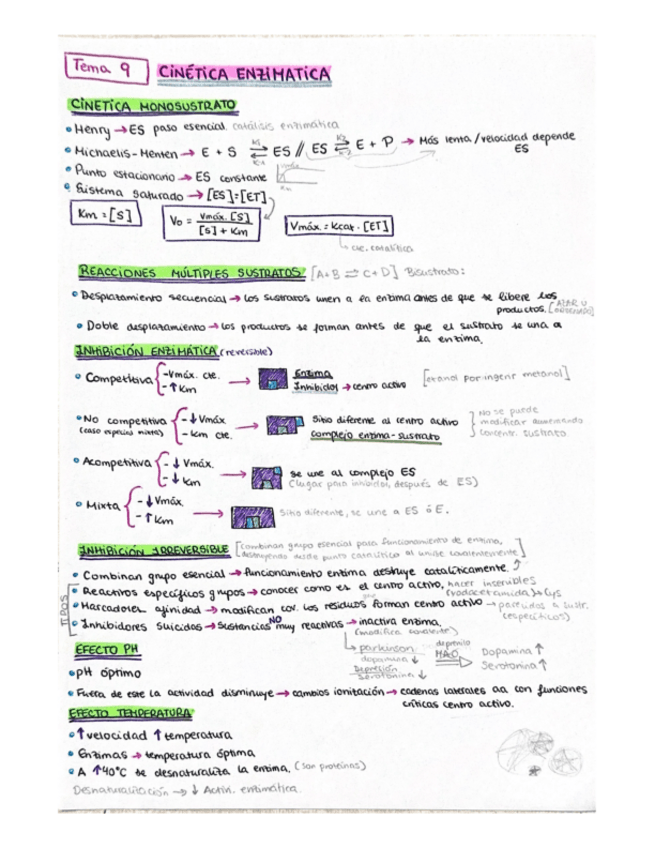 Tema 9 CINÉTICA ENZIMATICA
CINETICA MONOSUSTRATO
• Henry → ES paso esencial catálisis enzimática
• Michaelis-Menten → E + S ⇌ ES // ES ⇌ E + P → Más lenta/velocidad depende ES
• Punto estacionario → ES constante
• Sistema saturado → [ES]=[ET]
Km = [S] V₀ = Vmáx. [S] / [S] + Km Vmáx. = Kcat · [ET]
cte. catalítica
REACCIONES MÚLTIPLES SUSTRATOS [A+B ⇌ C+D] Bisustrato:
• Desplazamiento secuencial → los sustratos unen a la enzima antes de que se libere los
productos. [AZAR u ORDENADO]
• Doble desplazamiento → los productos se forman antes de que el sustrato se una a
la enzima.
INHIBICIÓN ENZIMÁTICA (reversible)
• Competitiva { -Vmáx. cte. -↑Km → Enzima Inhibidor → centro activo [etanol por ingerir metanol]
• No competitiva (caso especial mixta) { -↓Vmáx -Km cte. → Sitio diferente al centro activo
complejo enzima-sustrato
No se puede
modificar aumentando
concentr. sustrato.
• Acompetitiva { -↓Vmáx. -↓Km → se une al complejo ES
(lugar para inhibidor, después de ES)
• Mixta { -↓Vmáx. -↑Km → Sitio diferente, se une a ES ó E.
INHIBICIÓN IRREVERSIBLE [combinan grupo esencial para funcionamiento de enzima,
destruyendo desde punto catalítico al unirse covalentemente]
• Combinan grupo esencial → funcionamiento enzima destruye catalíticamente.
TIPOS
• Reactivos específicos grupos → conocer como es el centro activo, hacer inservibles
(yodacetamida) → Cys
• Marcadores afinidad → modifican cov. los residuos forman centro activo → parecidos a sustr.
(específicos)
• Inhibidores suicidas → sustancias NO muy reactivas → inactiva enzima.
(modifica covalente)
parkinson
dopamina ↓
Depresión
Serotonina ↓
deprenilo
MAO
Dopamina ↑
Serotonina ↑
EFECTO PH
• pH óptimo
• Fuera de este la actividad disminuye → cambios ionitación → cadenas laterales aa con funciones
críticas centro activo.
EFECTO TEMPERATURA
• ↑velocidad ↑temperatura
• Enzimas → temperatura óptima
• A ↑40°C se desnaturaliza la enzima. (son proteínas)
Desnaturalización → ↓ Activ. enzimática.